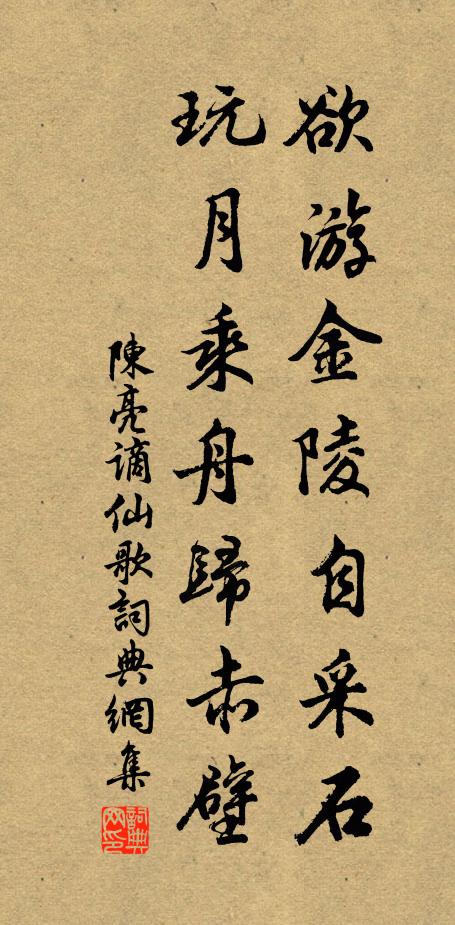 欲游金陵自采石
玩月乘舟歸赤壁
陳亮謫仙歌詞典網集
詞典網印